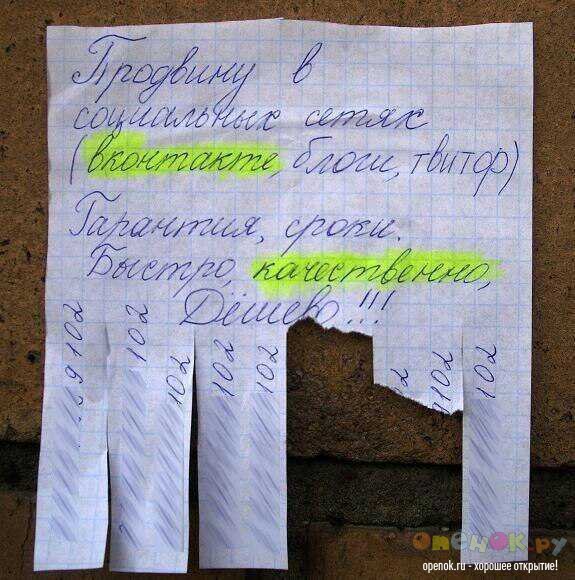 Продвину в
социальных сетях
(вконтакте, блоги, твитор)
Гарантия, сроки.
Быстро, качественно,
Дёшево!!!
102
102
102
102
102
102
102
опёнок.ру
openok.ru - хорошее открытие!